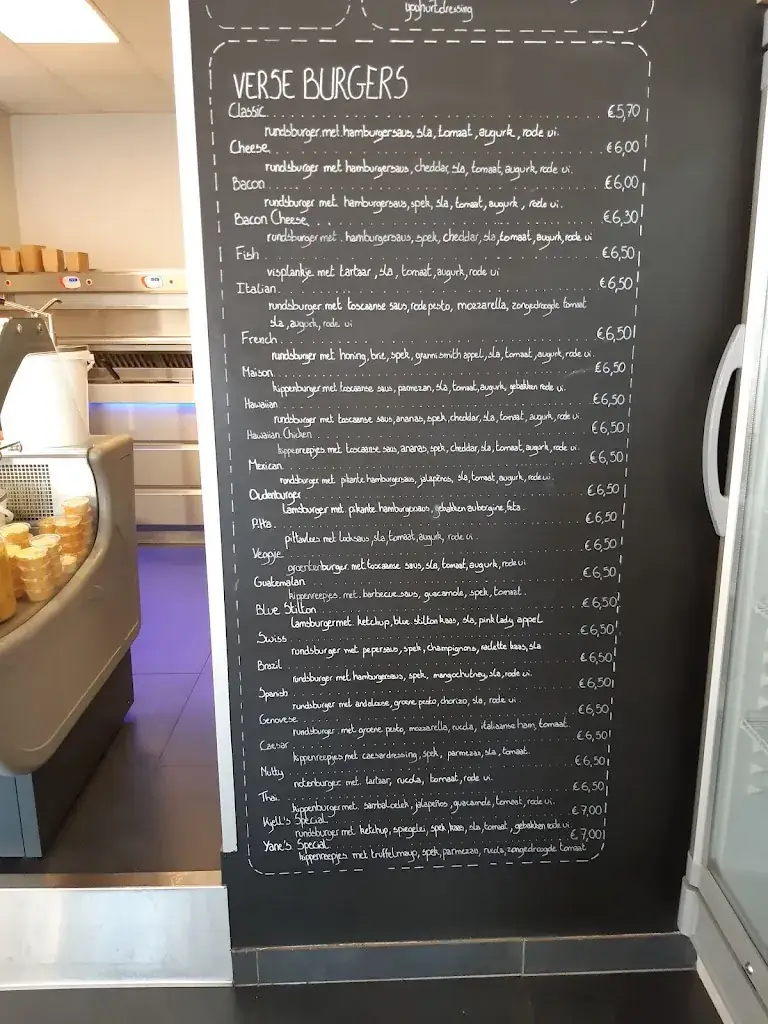 yoghurtdressing
VERSE BURGERS
Classic €5,70
rundsburger met hamburgersaus, sla, tomaat, augurk, rode ui.
Cheese €6,00
rundsburger met hamburgersaus, cheddar, sla, tomaat, augurk, rode ui.
Bacon €6,00
rundsburger met hamburgersaus, spek, sla, tomaat, augurk, rode ui.
Bacon Cheese €6,30
rundsburger met hamburgersaus, spek, cheddar, sla, tomaat, augurk, rode ui
Fish €6,50
visplankje met tartaar, sla, tomaat, augurk, rode ui
Italian €6,50
rundsburger met toscaanse saus, rode pesto, mozzarella, zongedroogde tomaat
sla, augurk, rode ui
French €6,50
rundsburger met honing, brie, spek, granni smith appel, sla, tomaat, augurk, rode ui.
Maison €6,50
kippenburger met toscaanse saus, parmezan, sla, tomaat, augurk, gebakken rode ui.
Hawaiian €6,50
rundsburger met toscaanse saus, ananas, spek, cheddar, sla, tomaat, augurk, rode ui.
Hawaiian Chicken €6,50
kippenreepjes met toscaanse saus, ananas, spek, cheddar, sla, tomaat, augurk, rode ui.
Mexican €6,50
rundsburger met pikante hamburgersaus, jalapeños, sla, tomaat, augurk, rode ui.
Oudenburger €6,50
Lamsburger met pikante hamburgersaus, gebakken aubergine, feta.
Pitta €6,50
pittavlees met looksaus, sla, tomaat, augurk, rode ui.
Veggie €6,50
groentenburger met toscaanse saus, sla, tomaat, augurk, rode ui
Guatemalan €6,50
kippenreepjes met barbecuesaus, guacamole, spek, tomaat.
Blue Stilton €6,50
lamsburger met ketchup, blue stilton kaas, sla, pink lady appel
Swiss €6,50
rundsburger met pepersaus, spek, champignons, raclette kaas, sla
Brazil €6,50
rundsburger met hamburgersaus, spek, mangochutney, sla, rode ui.
Spanish €6,50
rundsburger met andalouse, groene pesto, chorizo, sla, rode ui
Genovese €6,50
rundsburger met groene pesto, mozzarella, rucola, italiaanse ham, tomaat.
Caesar €6,50
kippenreepjes met caesardressing, spek, parmezan, sla, tomaat.
Nutty €6,50
notenburger met tartaar, rucola, tomaat, rode ui.
Thai €6,50
kippenburger met sambal oelek, jalapeños, guacamole, tomaat, rode ui.
Kjell's Special €7,00
rundsburger met ketchup, spiegelei, spek, kaas, sla, tomaat, gebakken rode ui.
Yane's Special €7,00
kippenreepjes met truffelmayo, spek, parmezan, rucola, zongedroogde tomaat